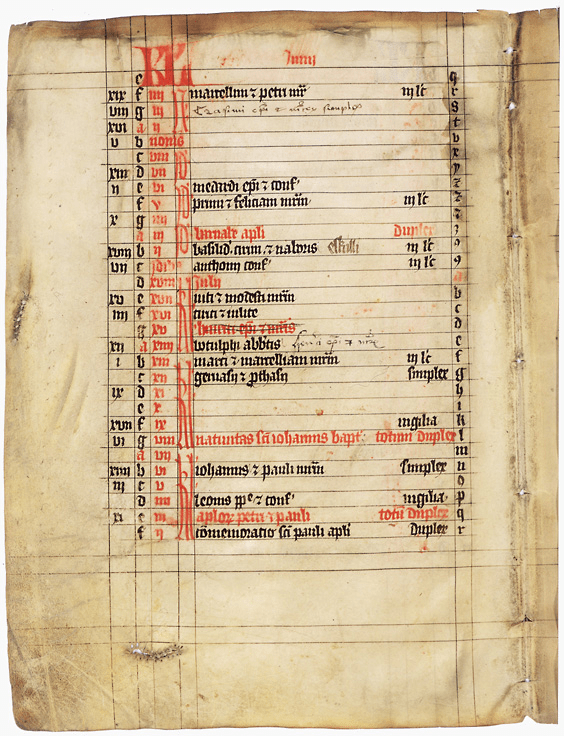 KL Iunii
e q
xix f iiii marcellini ⁊ petri mr̄ iii lc̄ r
viii g iii Erasmi ep̄i ⁊ mr̄is simplex s
xvi a ii t
v b nonis v
c viii x
xiii d vii y
ii e vi medardi ep̄i ⁊ conf'
f v primi ⁊ feliciani mr̄m iii lc̄
x g iiii
a iii barnabe apl̄i duplex
xviii b ii basilid' cirini ⁊ naboris iii lc̄ 9
vii c idib' anthonii conf' iii lc̄ 9
d xviii Julii a
xv e xvii viti ⁊ modesti mr̄m b
iiii f xvi cirici ⁊ iulite c
g xv d
xii a xiiii botulphi abb̄tis e
i b xiii marci ⁊ marcelliani mr̄m iii lc̄ f
c xii geruasii ⁊ ꝓthasii simplex g
ix d xi h
e x i
xvii f ix uigilia k
vi g viii natiuitas sc̄i iohannis bapt' totum duplex l
a vii m
xiiii b vi iohannis ⁊ pauli mr̄m simplex n
iii c v o
d iiii leonis pp̄e ⁊ conf' uigilia p
xi e iii aplor̄ petri ⁊ pauli totū duplex q
f ii cōmemoratio sc̄i pauli apl̄i duplex r